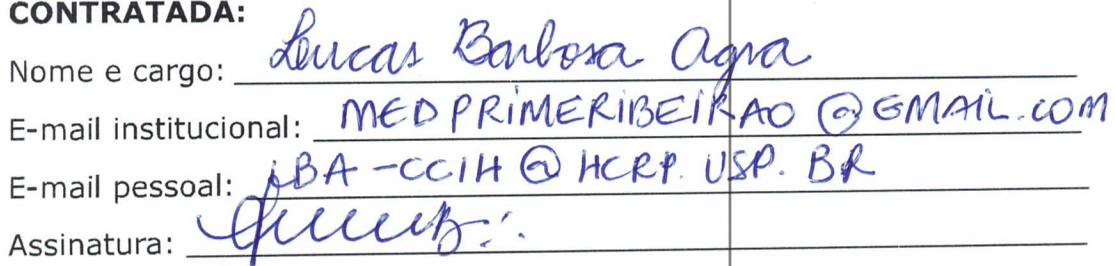 CONTRATADA:
Nome e cargo: Lucas Barbosa Agra
E-mail institucional: MEDPRIMERIBEIRAO@GMAIL.COM
E-mail pessoal: LBA-CCIH@HCRP.USP.BR
Assinatura: